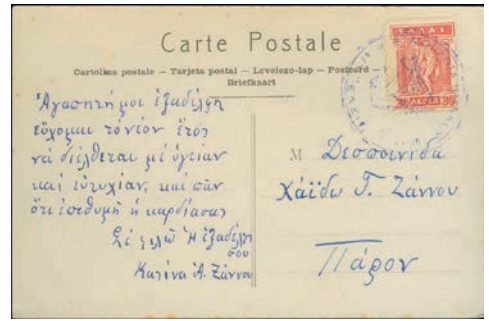 Carte Postale
Cartolina postale — Tarjeta postal — Levelezo-lap — Postcard —
Briefkaart
ΕΛΛΑΣ
Ἀγαπητή μοι ἐξαδέλφη
εὔχομαι τὸ νέον ἔτος
νά διέλθεται μέ ὑγείαν
καί εὐτυχίαν, καί πᾶν
ὅτι ἐπιθυμῆ ἡ καρδίασας
Σέ φιλῶ Ἡ ἐξαδέλφη
σου
Κατίνα Ἀ. Ζάννου
M Δεσποινίδα
Χάϊδω Γ. Ζάννου
Πάρον